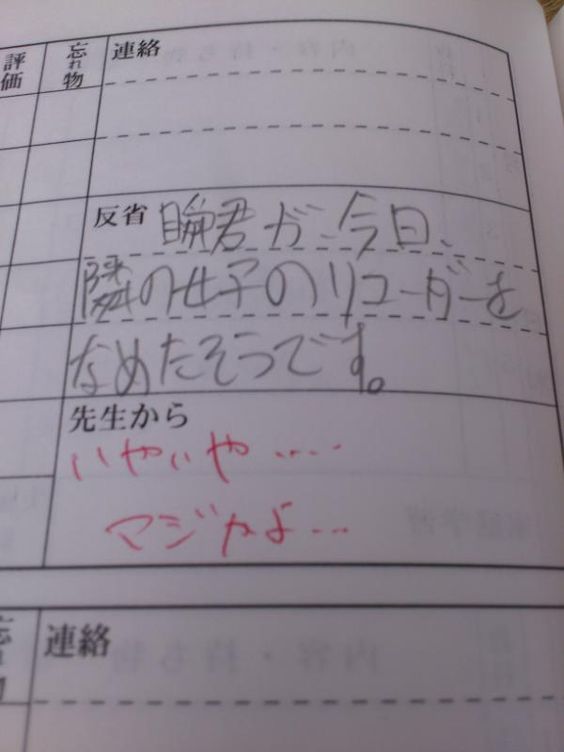 評価
忘れ物
連絡
反省 瞬君が、今日、
隣の女子のリコーダーを
なめたそうです。
先生から
いやいや....
マジかよ...
連絡